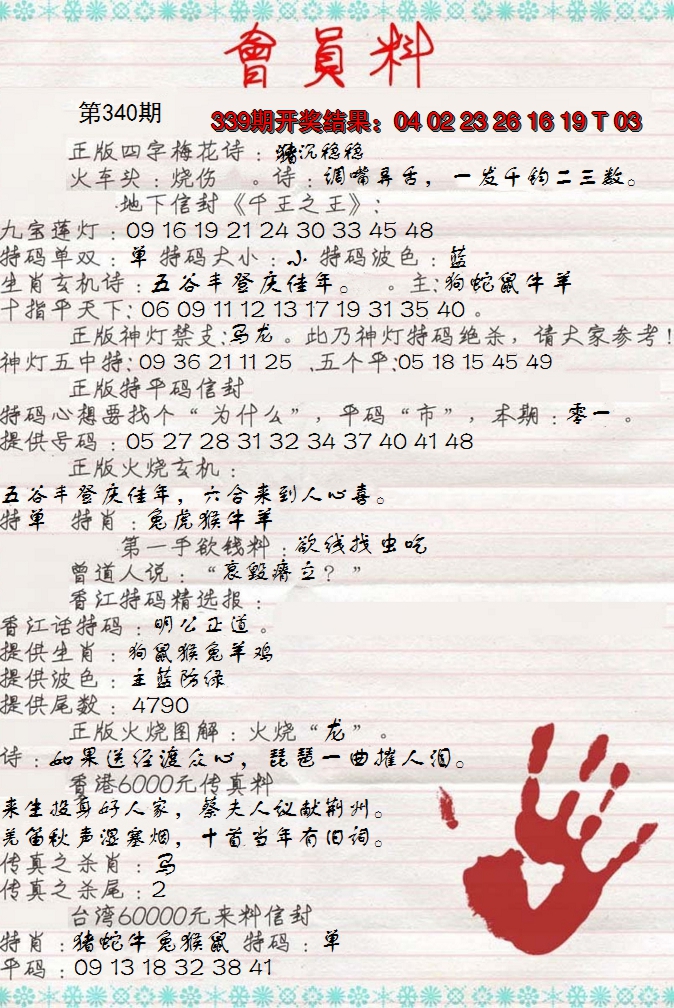 會員料
第340期
339期开奖结果：04 02 23 26 16 19 T 03
正版四字梅花诗：猪沉稳稳
火车头：烧伤 。诗：调嘴弄舌，一发千钧二三数。
地下信封《千王之王》：
九宝莲灯：09 16 19 21 24 30 33 45 48
特码单双：单 特码大小：小 特码波色：蓝
生肖玄机诗：五谷丰登庆佳年。 。主：狗蛇鼠牛羊
十指平天下：06 09 11 12 13 17 19 31 35 40 。
正版神灯禁支：马龙 。此乃神灯特码绝杀，请大家参考！
神灯五中特：09 36 21 11 25 、五个平：05 18 15 45 49
正版特平码信封
特码心想要找个“为什么”，平码“市”，本期：零一 。
提供号码：05 27 28 31 32 34 37 40 41 48
正版火烧玄机：
五谷丰登庆佳年，六合来到人心喜。
特单 特肖：兔虎猴牛羊
第一手欲钱料：欲钱找虫吃
曾道人说：“哀毁瘠立？”
香江特码精选报：
香江话特码：明公正道。
提供生肖：狗鼠猴兔羊鸡
提供波色：主蓝防绿
提供尾数：4790
正版火烧图解：火烧“龙”。
诗：如果送经渡众心，琵琶一曲摧人泪。
香港6000元传真料
来生投身好人家，蔡夫人议献荆州。
羌笛秋声湿塞烟，十首当年有旧词。
传真之杀肖：马
传真之杀尾：2
台湾60000元来料信封
特肖：猪蛇牛兔猴鼠 特码：单
平码：09 13 18 32 38 41